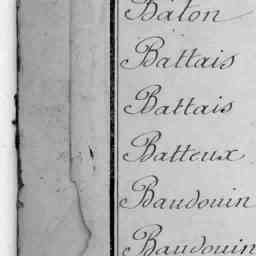 Baton
Battais
Battais
Batteux
Baudouin
Baudouin